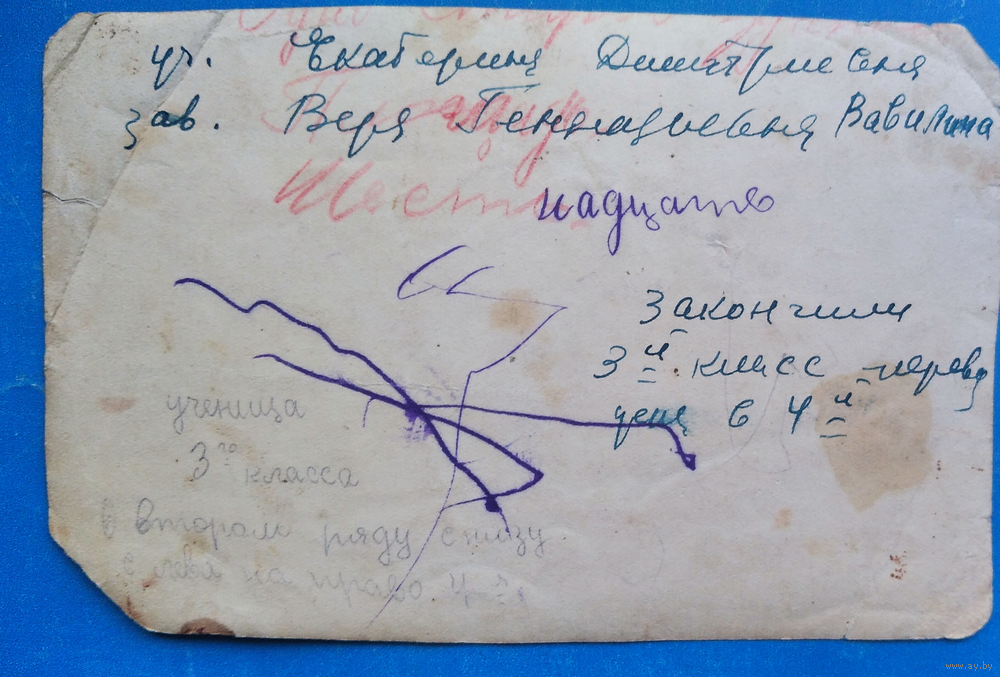 уч. Екатерина Дмитриевна
зав. Вера Геннадьевна Вавилина
Шестнадцать
Закончили
3й класс перево
дена в 4й
ученица
3го класса
в втором ряду снизу
с лева на право 4я
www.ay.by